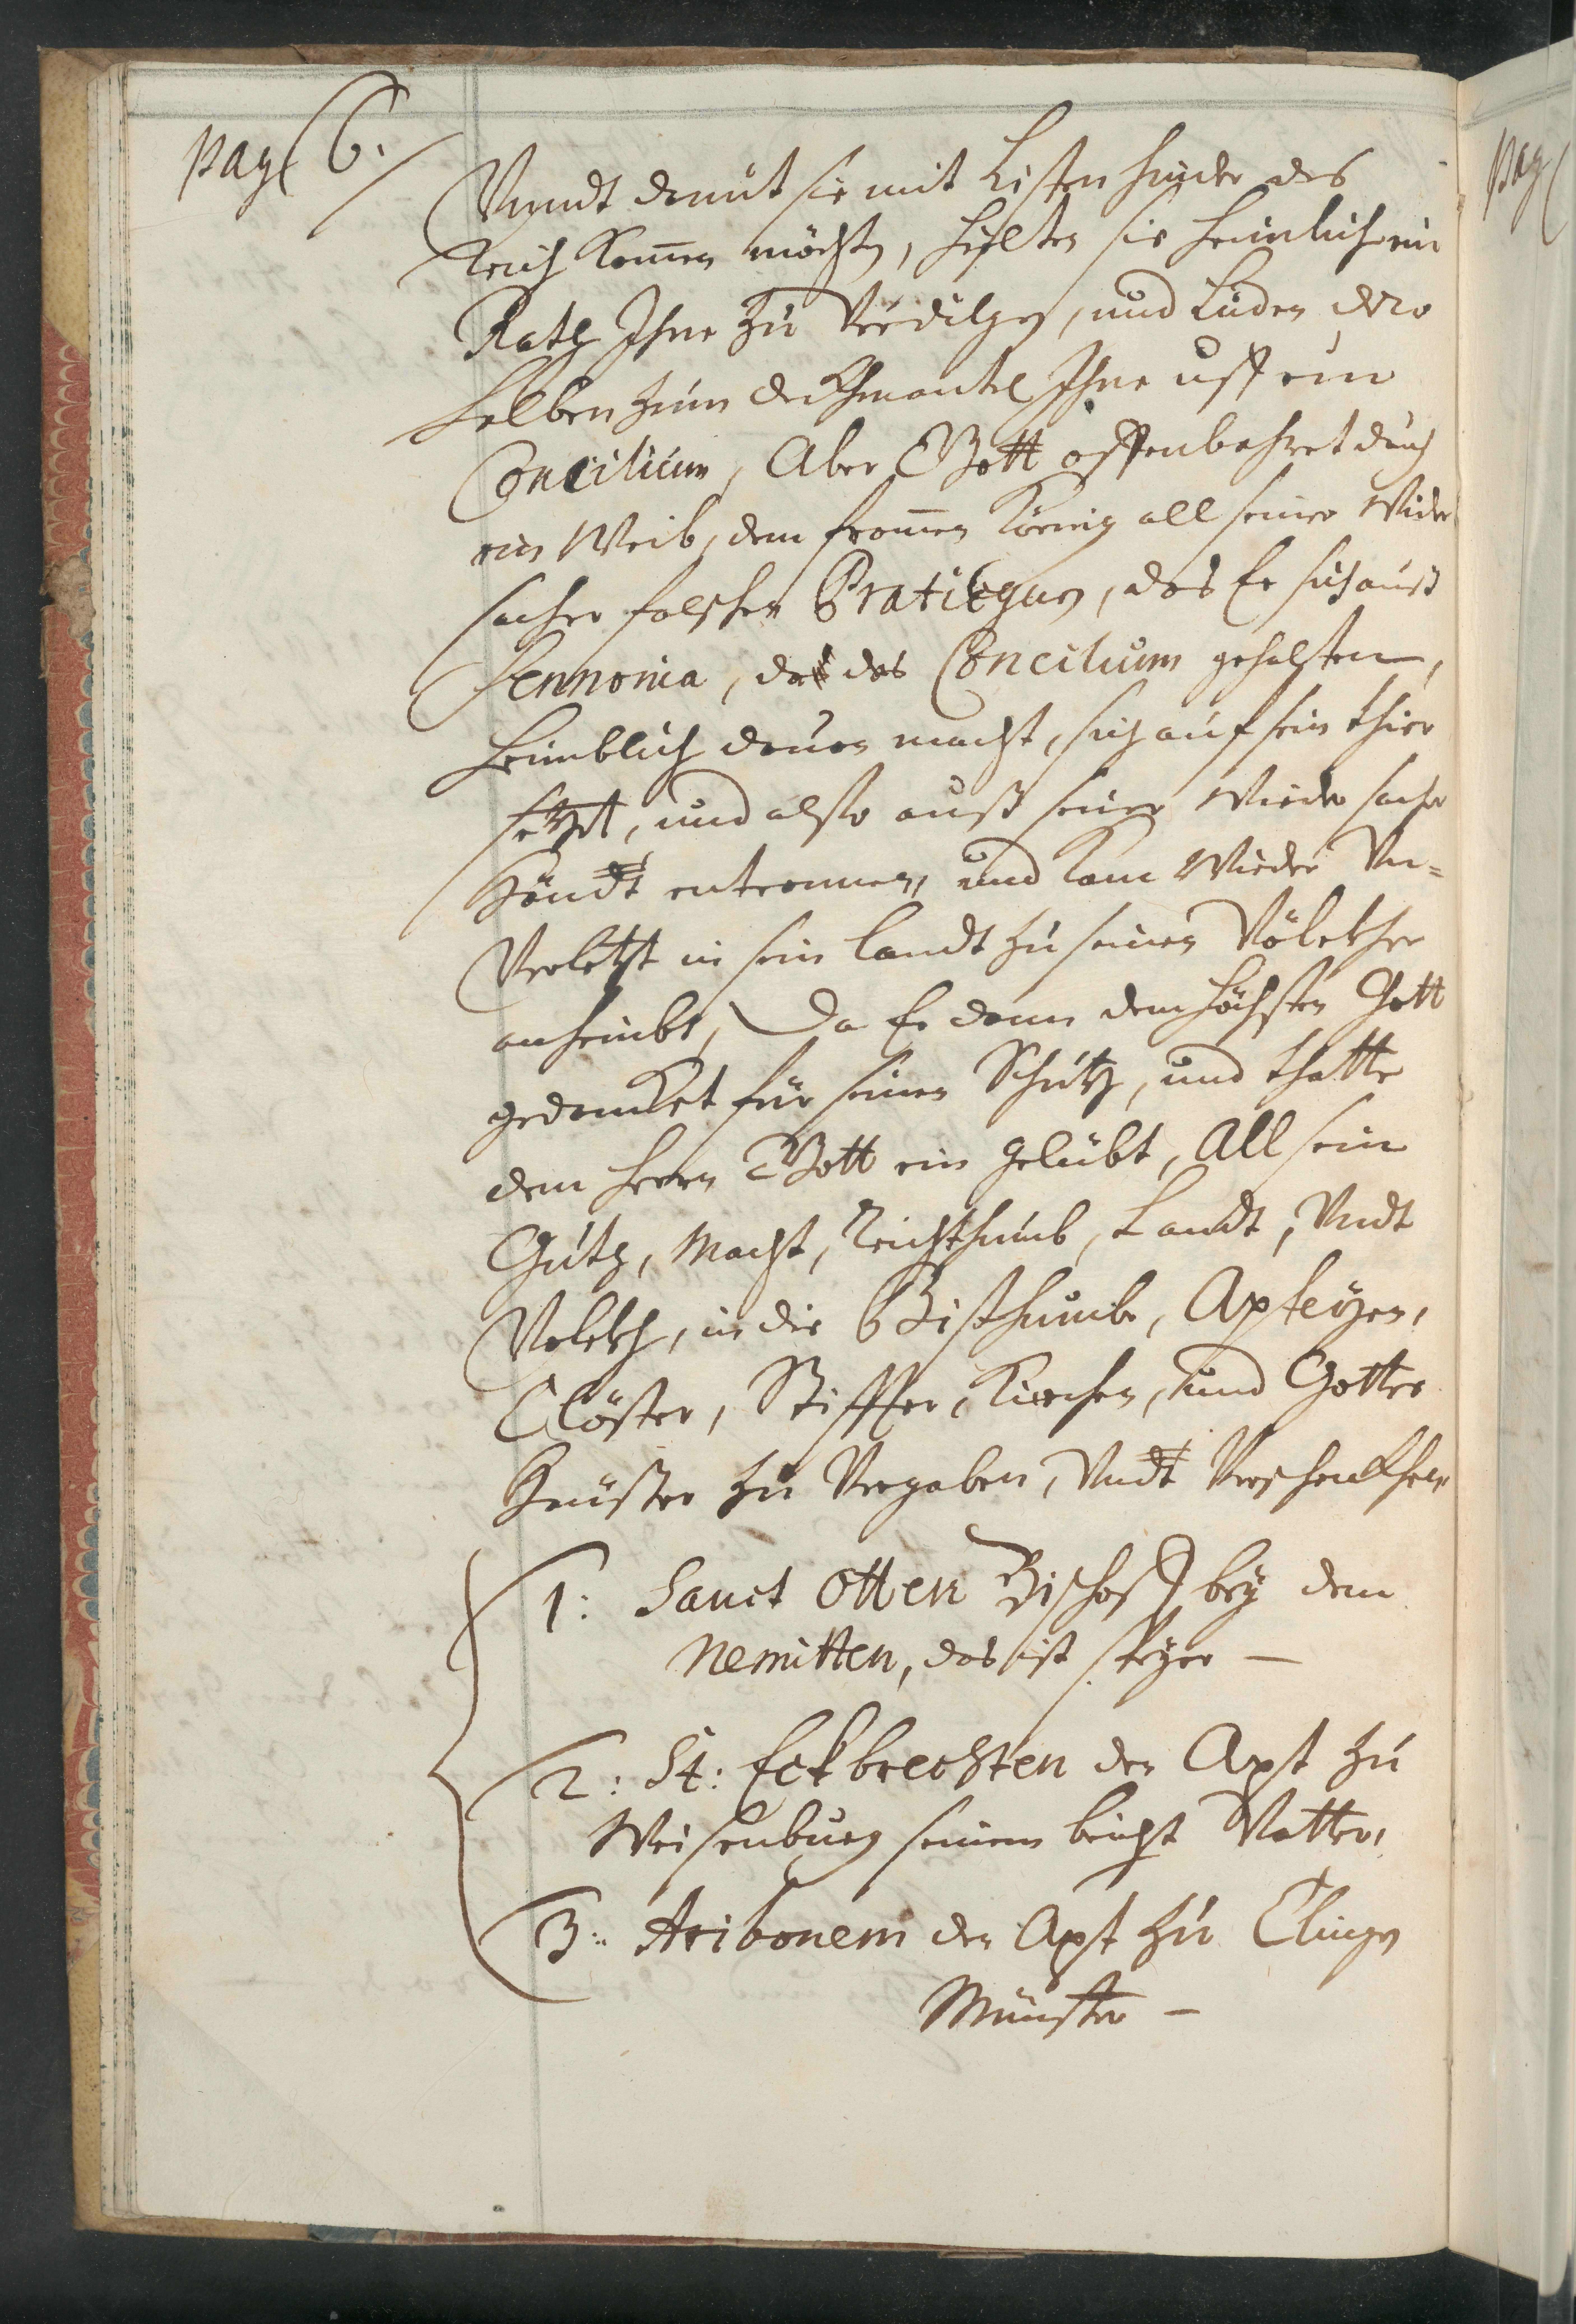 pag 6.
Vnndt damit sie mit Listen hinder das
Reich kom̄en möchten, hielten sie heimlich ein
Rath Ihne zu Verdilgen, und Luden dero
selben zum deckhmantel Ihne uff ein
Concilium, Aber Gott offenbahret durch
ein Weib, dem from̄en König all seiner Wider
sacher falscher Pratickhen, das Er sich auß
Pennonia, da das Concilium gehalten,
heimblich dauon macht, sich auf sein thier
setzt, und also auß seiner Wieder sacher
Händt entronnen, und kam Wieder Vn=
Verletzt in sein landt zu seinen Völckher
anheimbs, Da Er dann dem höchsten Gott
gedancket für seinen Schutz, und thatte
dem herrn Gott ein gelübt, All sein
Guth, Macht, Reichthumb, Landt, Vndt
Volckh, in die Bisthumbe, Apteyen,
Clöster, Stiffter, Kirchen, und Gottes
Heuser zu Vergaben, Vndt Verschenckhen,
1: Sanct Otten Bischoff bey dem
Nemitten, das ist speyer —
2: St: Eckbrechten der Apt zu
Weisenburg seinem beicht Vatter,
3: Aribonem der Apt zu Clingen
Münster —
pag